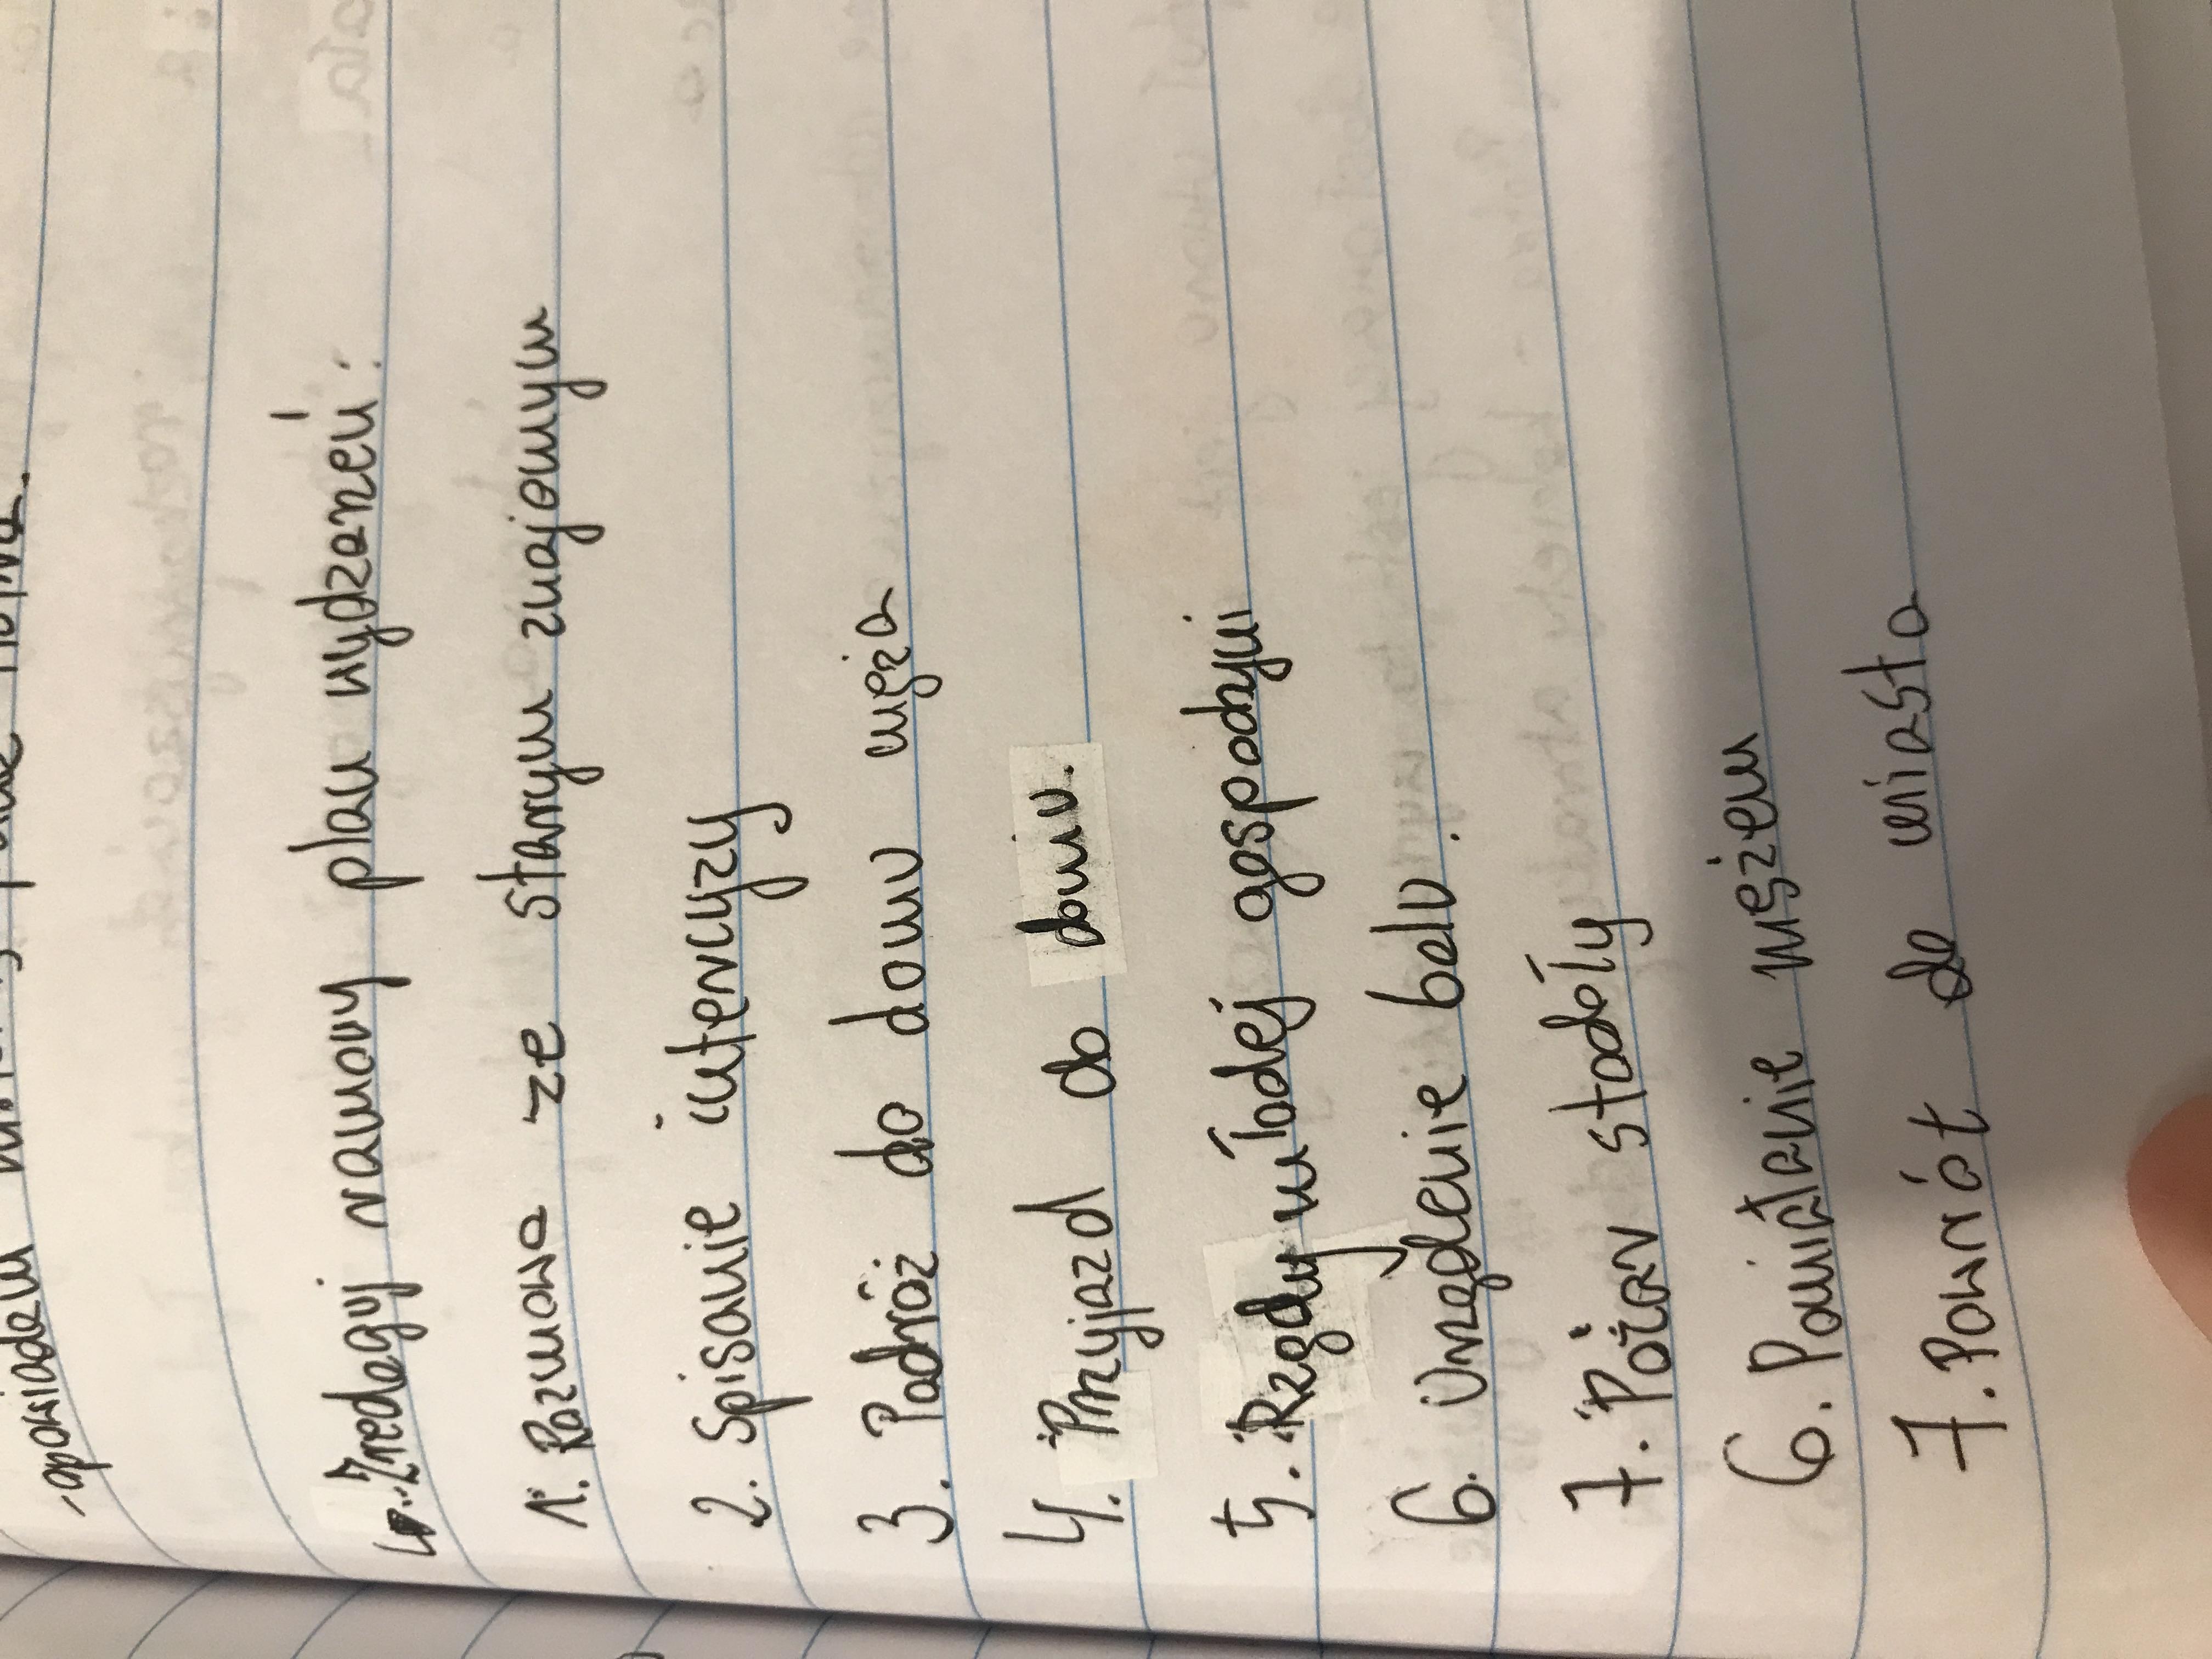 -opowiadam
Zredaguj ramowy plan wydarzeń:
1. Rozmowa ze starym znajomym
2. Spisanie intercyzy
3. Podróż do domu męża
4. Przyjazd do domu.
5. Rządy młodej gospodyni
6. Urządzenie balu.
7. Pożar stodoły
6. Powiatanie mężem
7. Powrót do miasta